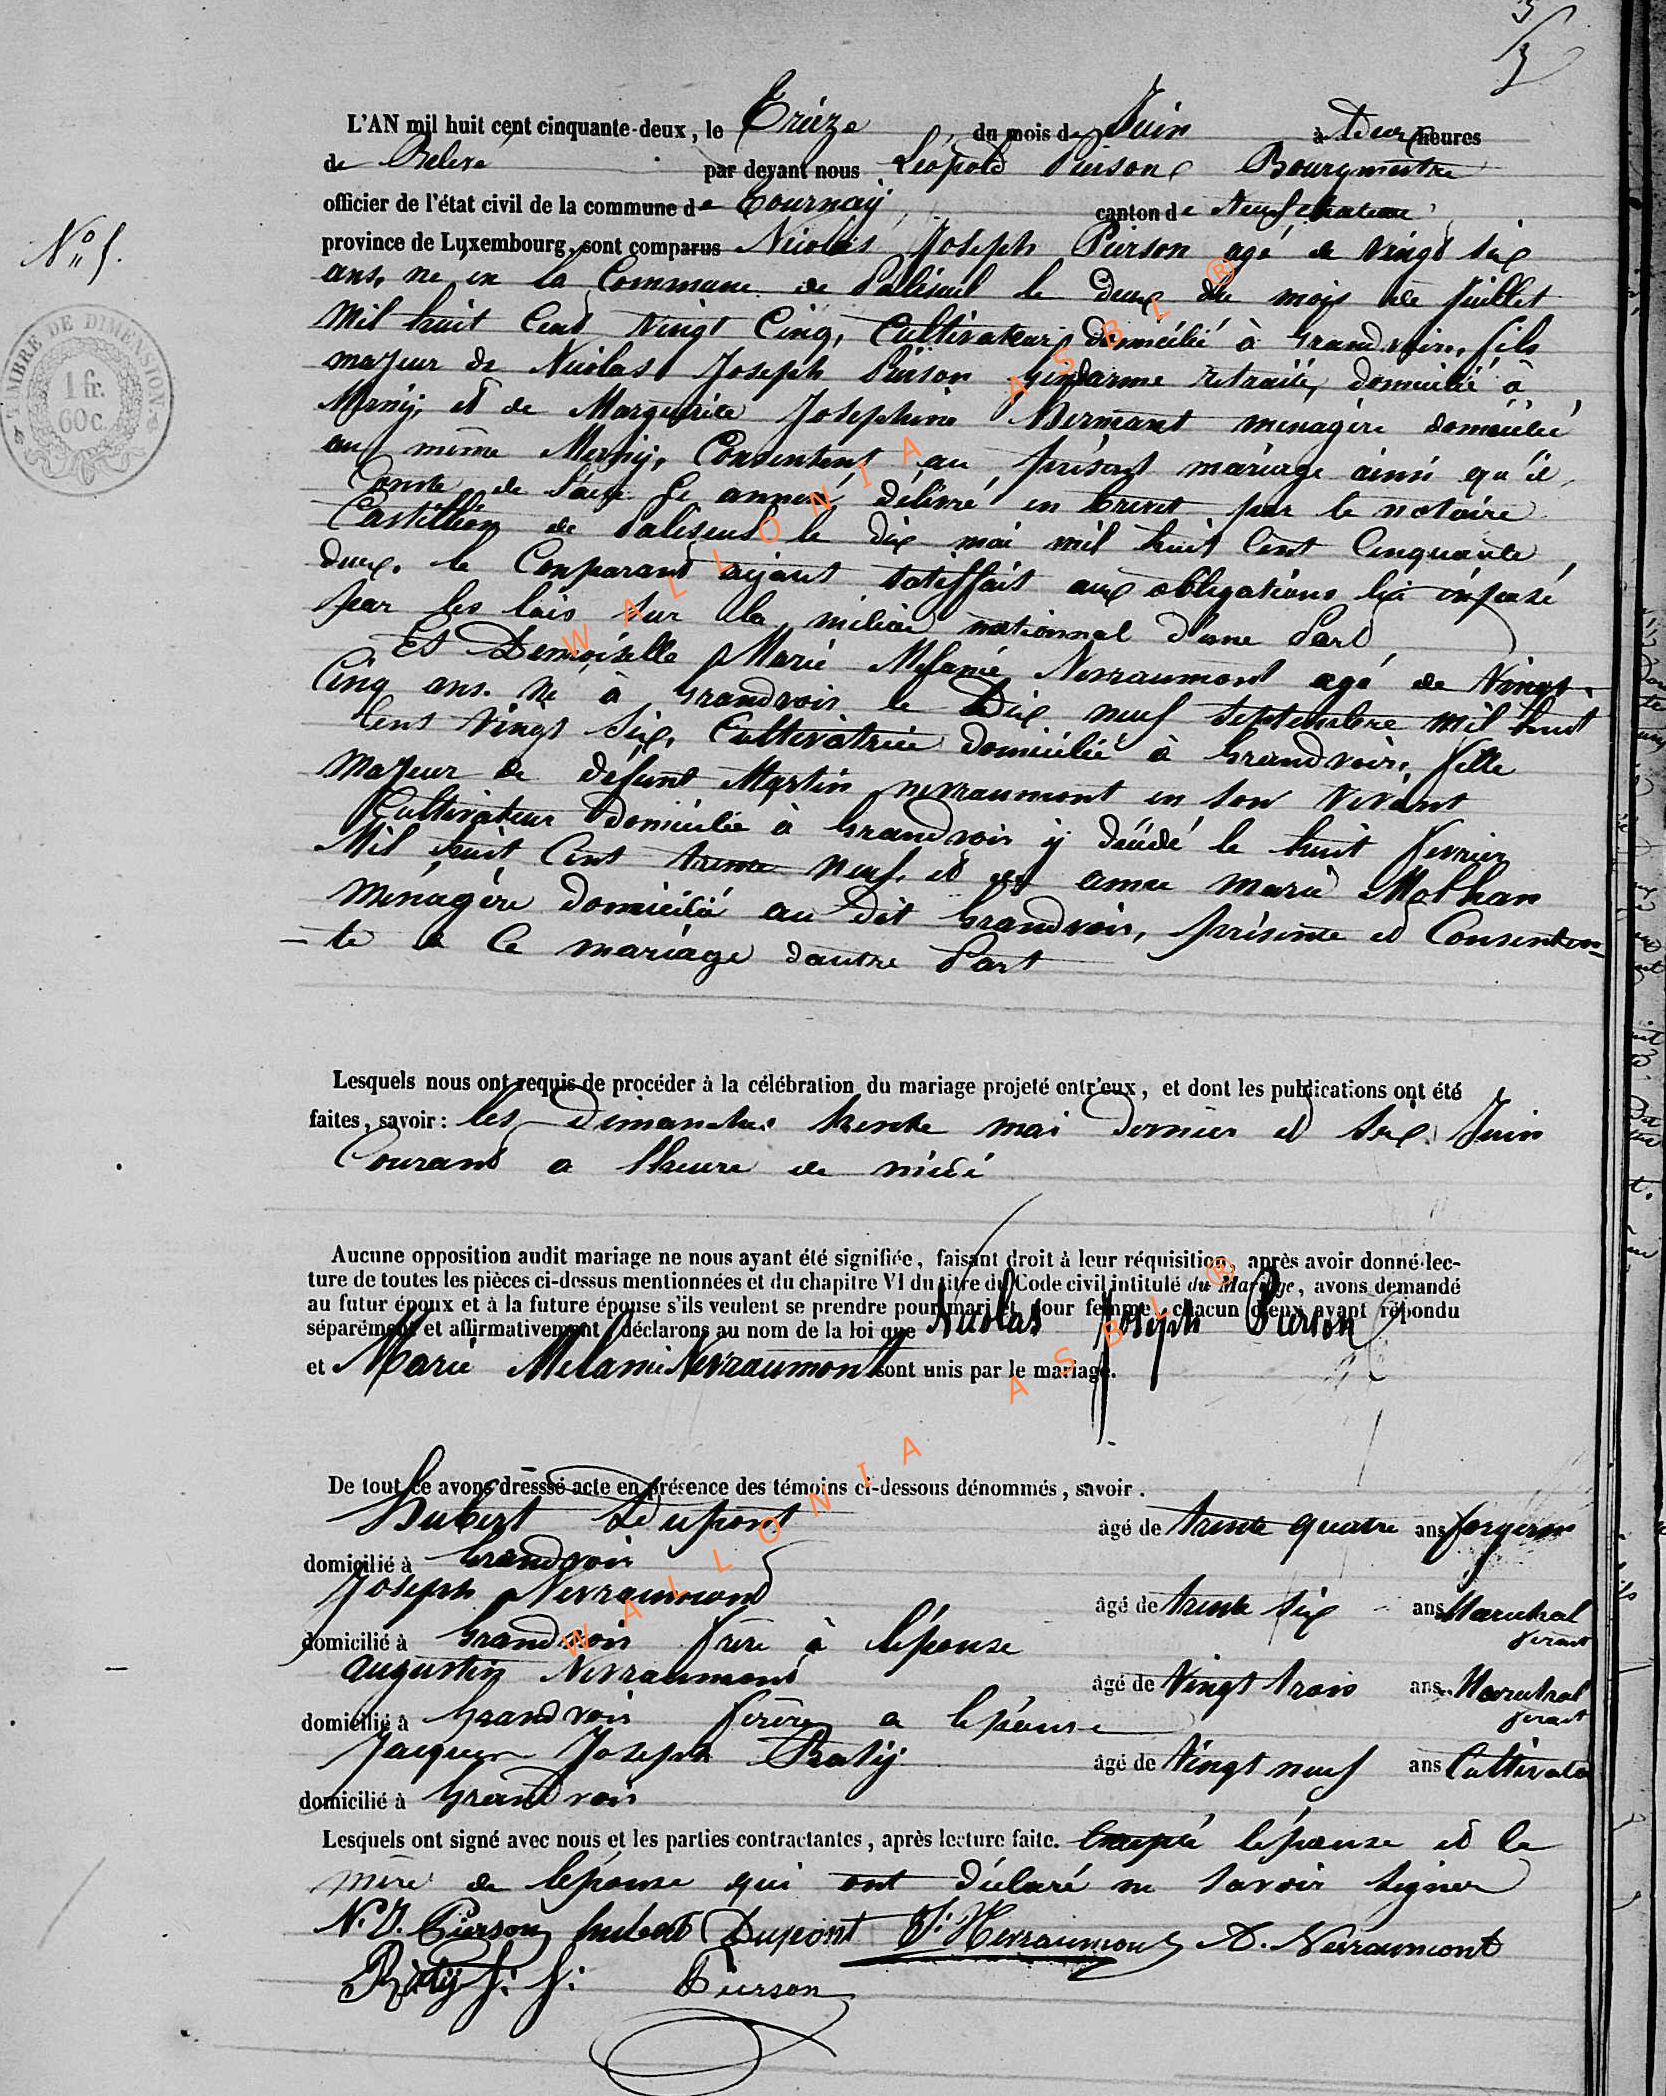 3
L'AN mil huit cent cinquante-deux, le Trieze du mois de Juin à Deux heures
de Relevé par devant nous Léopold Pierson Bourgmestre
officier de l'état civil de la commune de Tournay canton de Neufchateau
N° 5.
province de Luxembourg, sont comparus Nicolas Joseph Pierson agé de vingt six
ans, né en la Commune de Paliseul le Deux du mois de Juillet
Mil huit Cent Vingt Cinq, Cultivateur domicilié à Grandvoir, fils
majeur de Nicolas Joseph Pierson gendarme retraité, domicilié à
Merny, et de Marguerite Josephine Hermant menagère domicilié
au même Merny, Consentent au présent mariage ainsi qu'il
Conste de l'acte ci annexé, délivré en brevet par le notaire
Castilhon de Paliseul le dix mai mil huit Cent Cinquante
deux. le Comparant ayant satisffait aux obligations lui imposé
par les lois sur la milice nationnal d'une Part
Et Demoiselle Marie Melanie Nevraumont agé de Vingt
Cinq ans. né à Grandvoir le Dix neuf Septembre mil huit
Cent Vingt Six, Cultivatrice domicilié à Grandvoir, fille
Majeur de défunt Martin nevraumont en son vivant
Cultivateur domicilié à Grandvoir y décédé le huit fevrier
Mil huit Cent trente neuf. et de anne marie Molhan
Ménagère domicilié au dit Grandvoir, présente et Consentan-
-te a Ce mariage dautre Part
Lesquels nous ont requis de procéder à la célébration du mariage projeté entr'eux, et dont les publications ont été
faites, savoir : les Dimanches trente mai dernier et Six Juin
Courant a lheure de midi
Aucune opposition audit mariage ne nous ayant été signifiée, faisant droit à leur réquisition, après avoir donné lec-
ture de toutes les pièces ci-dessus mentionnées et du chapitre VI du titre du Code civil intitulé du Mariage, avons demandé
au futur époux et à la future épouse s'ils veulent se prendre pour mari et pour femme, chacun d'eux ayant répondu
séparément et affirmativement, déclarons au nom de la loi que Nicolas Joseph Pierson
et Marie Melanie Nevraumont sont unis par le mariage.
De tout ce avons dressé acte en présence des témoins ci-dessous dénommés, savoir.
Hubert Dupont âgé de trente quatre ans forgeron
domicilié à Grandvoir
Joseph Nevraumont âgé de trente six ans Marechal
ferant
domicilié à Grandvoir frère à lépouse
augustin Nevraumont âgé de Vingt trois ans Marechal
ferant
domicilié à Grandvoir frère a lépouse
Jacques Joseph Raty âgé de Vingt neuf ans Cultivate
domicilié à Grandvoir
Lesquels ont signé avec nous et les parties contractantes, après lecture faite. Excepté lépouse et la
mère de lépouse qui ont déclaré ne savoir signer
N. J. Pierson hubert Dupont J: Nevraumont A. Nevraumont
Raty J: J: Pierson
TIMBRE DE DIMENSION
1 fr.
60 c.
WALLONIA ASBL ®
WALLONIA ASBL ®